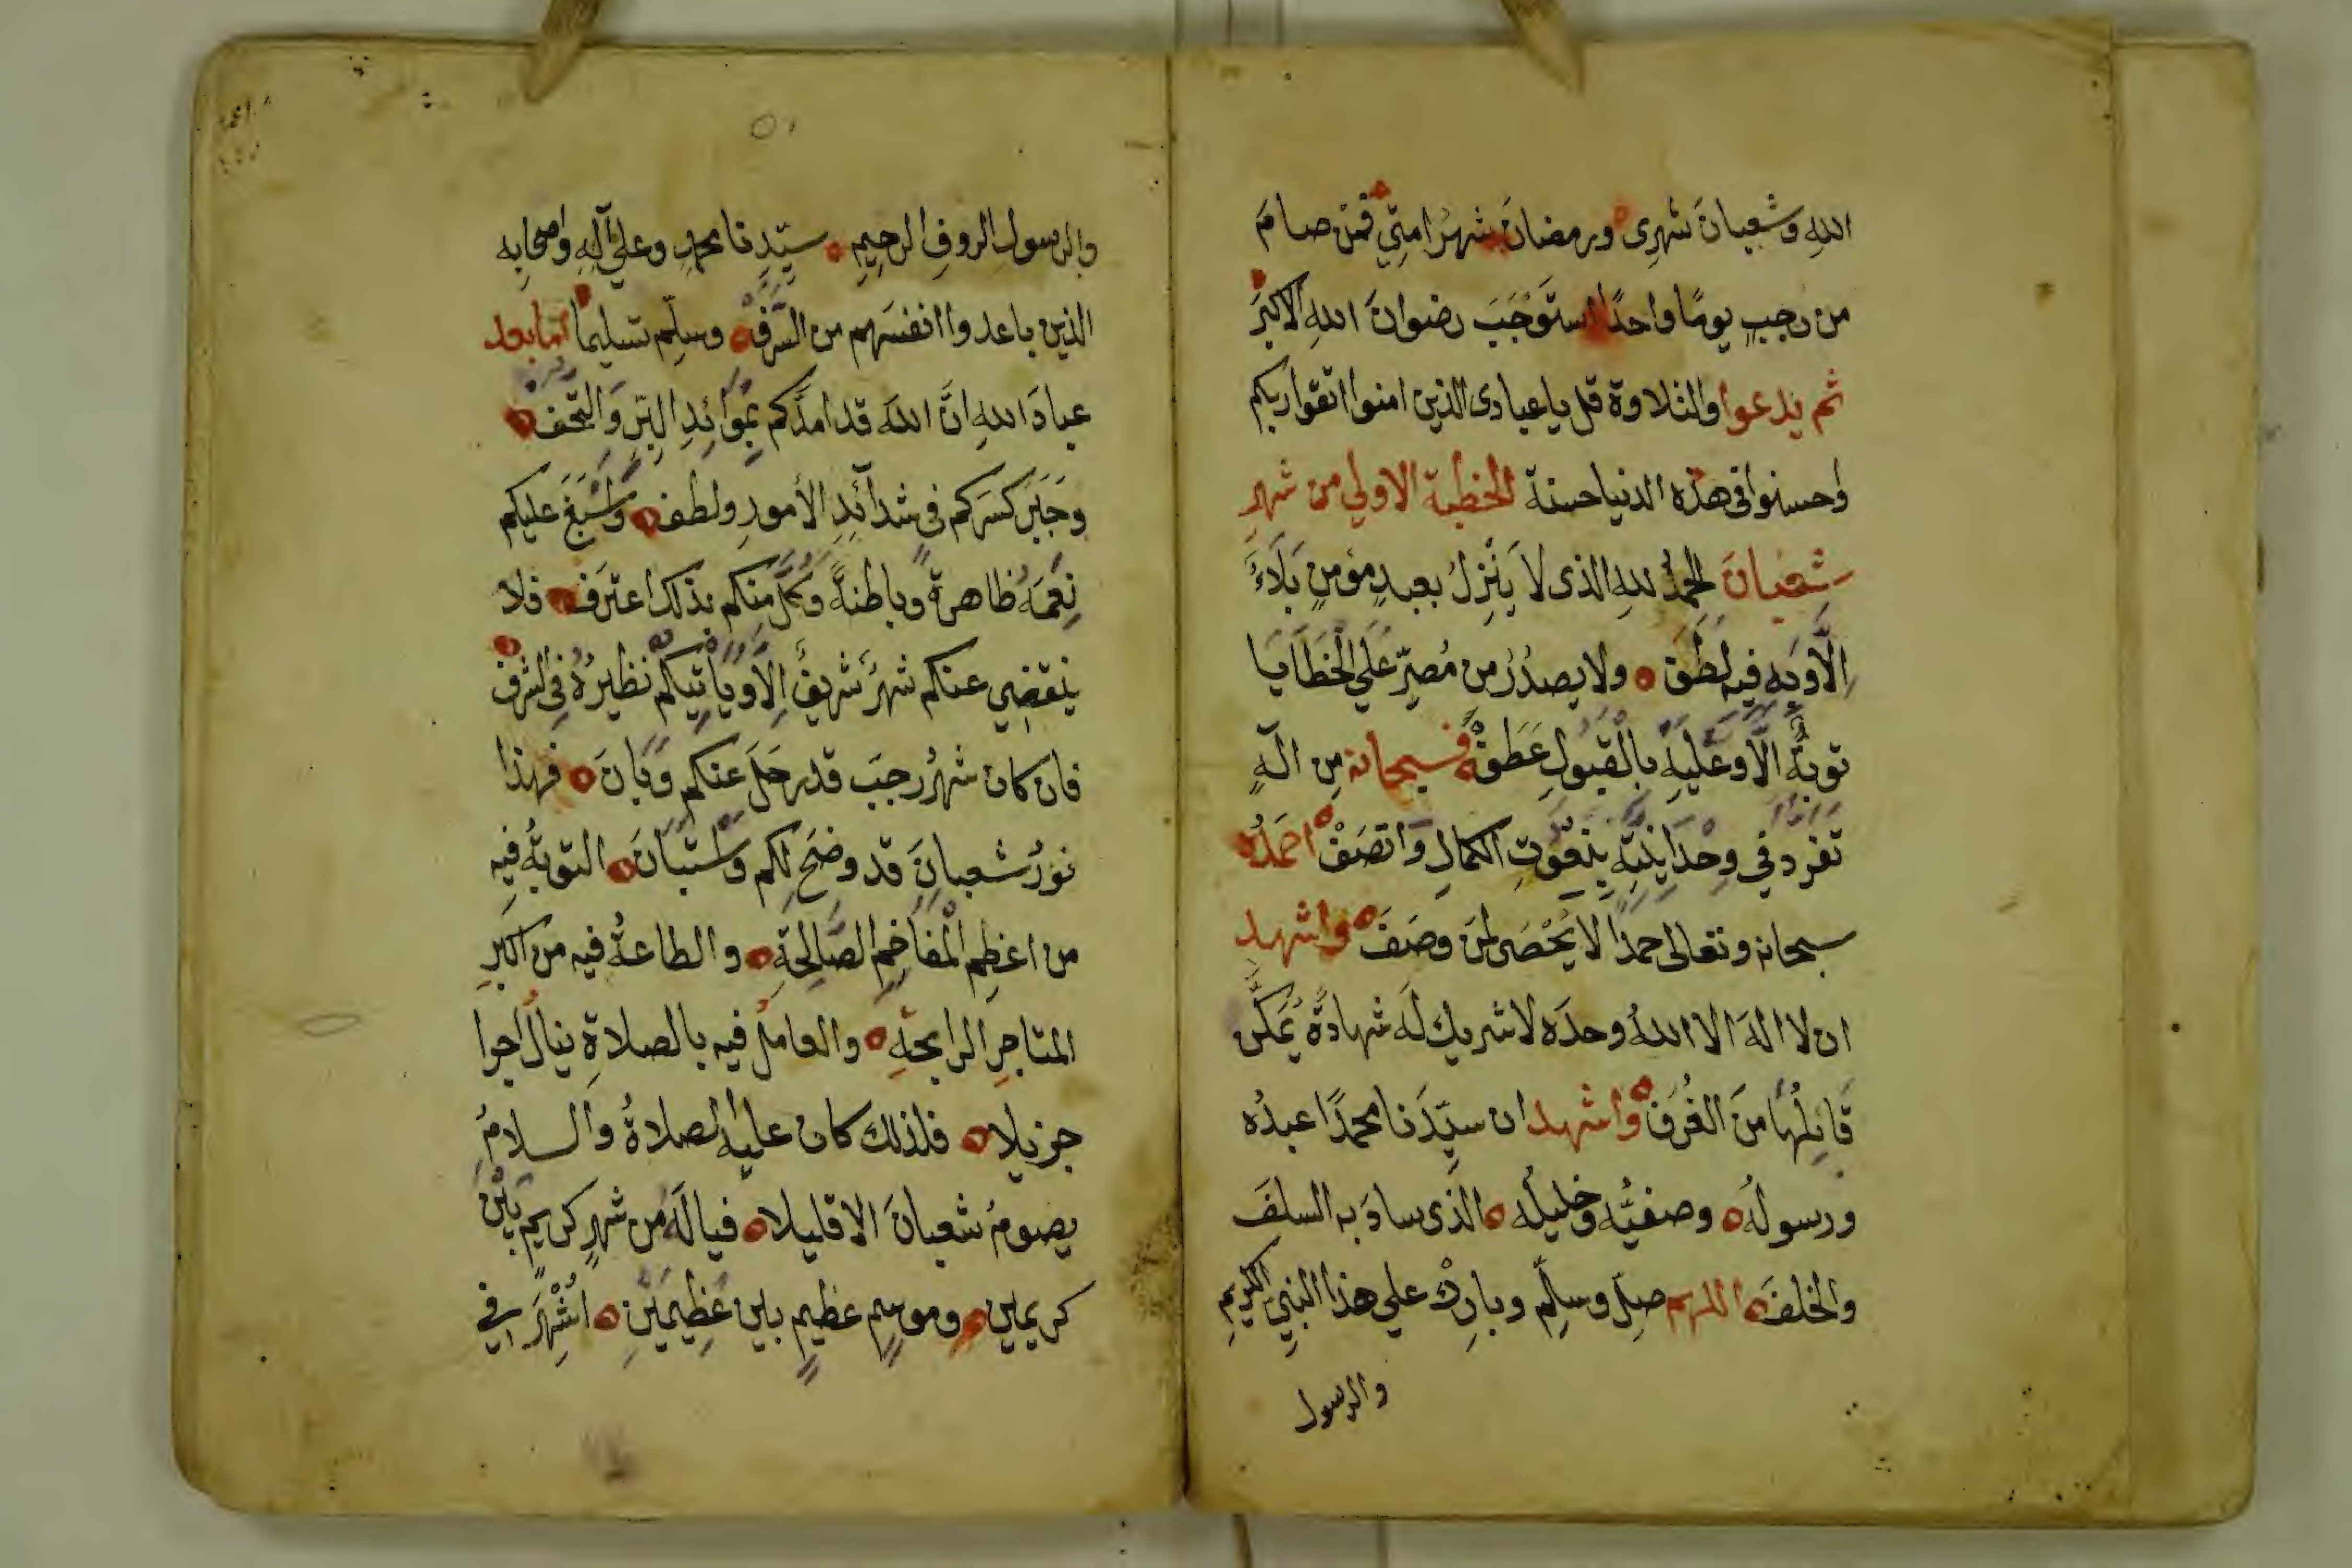 الله وشعبانَ شهرى ورمضانَ شهرُ امتِي فمَنْ صامَ
من رجبٍ يومًا واحدًا استَوْجَبَ رضوانَ اللهِ الاكبرَ
ثم يدعوا والتلاوة قل ياعبادى الذين امنوا اتقوا ربكم
واحسنوا فى هذه الدنيا حسنة الخطبة الاولي من شهرِ
شعبانَ الحمدُ للهِ الذى لا يَنْزِلُ بعبدٍ مؤمنٍ بَلَاءٌ
اِلَّا وَبِه فيه لَطَفَ ولا يصدُرُ من مُصِرٍّ عَلَي الْخَطَايَا
توبةٌ الَّا وعَليه بِالْقَبُولِ عَطَفَ فسبحانه مِن الهٍ
تفرد في وحْدَانِيَّتِهِ بِنُعُوتِ الكمالِ وَاتصَفْ احمَدُه
سبحانه وتعالى حمدًا لا يُحْصَى لمَن وصَفَ واشهد
ان لا الهَ الا اللهُ وحدَه لا شريك لَه شهادةً يُمَكَّن
قَائِلُهَا منَ الغُرَفْ واشهد ان سيِّدَنا محمدًا عبدُه
ورسولُه وصفيُّه وخليلُه الذى سادَ به السلفَ
والخلفَ اللهم صلِّ وسلِّم وبارِكْ علي هذا النبيِ الكريمِ
والرسول
٥١
والرسولِ الروفِ الرحِيمِ سيّدِنا محمدٍ وعلي آلِهِ واصحابِه
الذين باعدوا انفسَهم من السَّرَفْ وسلِّم تسليما اما بعد
عبادَ اللهِ انَّ اللهَ قد امدَّكم بمَوَائِدِ البِرِّ وَالتُّحَفْ
وجَبَرَ كسرَكم فى شدآئِدِ الأمورِ ولطف واَسْبَغَ عليكم
نِعَمَهُ ظاهرةً وباطنةً وَكُلٌّ منكم بذلك اعترَف فلا
ينقضِي عنكم شهرٌ شريفٌ اِلَّا وياْتِيكُم نظيرُهُ في الشرف
فان كان شهرُ رجبَ قد رحَلَ عنكم وَبَانَ فهذا
نورُ شعبانِ قد وضَحَ لكم واستَبَانَ التوبةُ فيه
من اعظِم الْمفاخِمِ الصَّالِحَةِ والطاعةُ فيه من اكبرِ
المتاجِرِ الرابحةِ والعاملُ فيه بالصلاةِ ينالُ اجرا
جزيلا فلذلك كان عليه الصلاةُ والسلامُ
يصومُ شعبانَ الا قليلا فيا لَهُ من شهرٍ كريمٍ بَيْنَ
كريمين وموسِمٍ عظيمٍ بين عَظِيمَيْنِ اشْتُهِرَ في